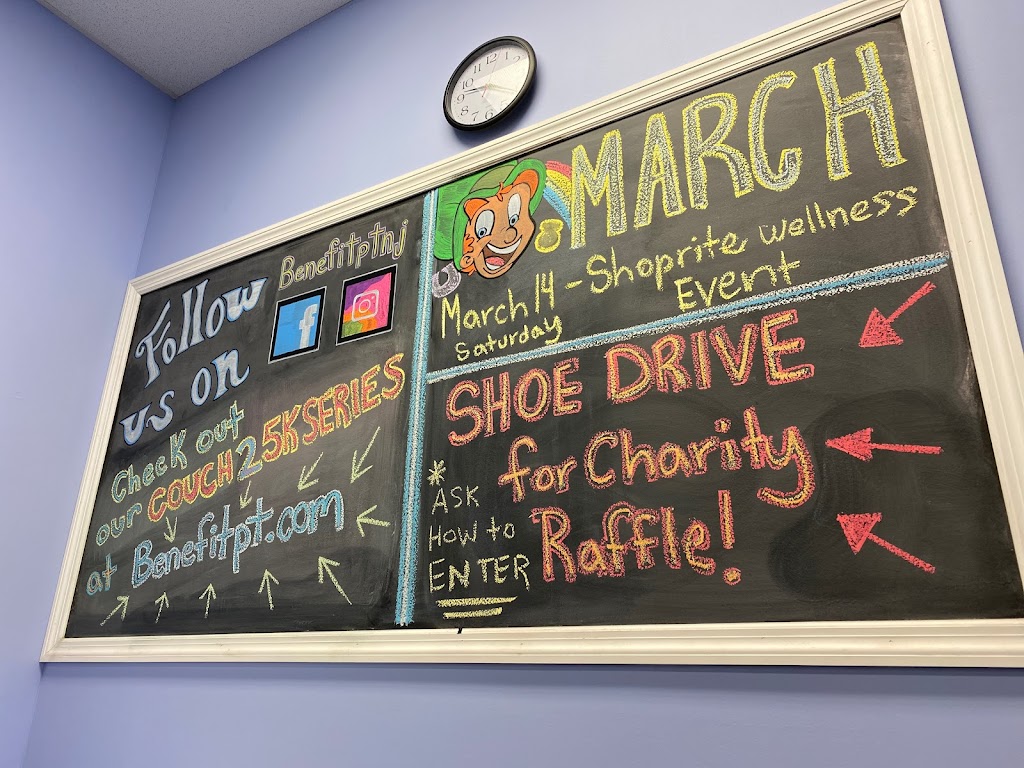 Follow
us on
Benefitptnj
f
Check out
our COUCH 2 5K SERIES
at Benefitpt.com
MARCH
March 14 - Shoprite wellness
Saturday
Event
SHOE DRIVE
for Charity
Raffle!
*
ASK
HOW to
ENTER
12
1
11
10
9
8
7
6